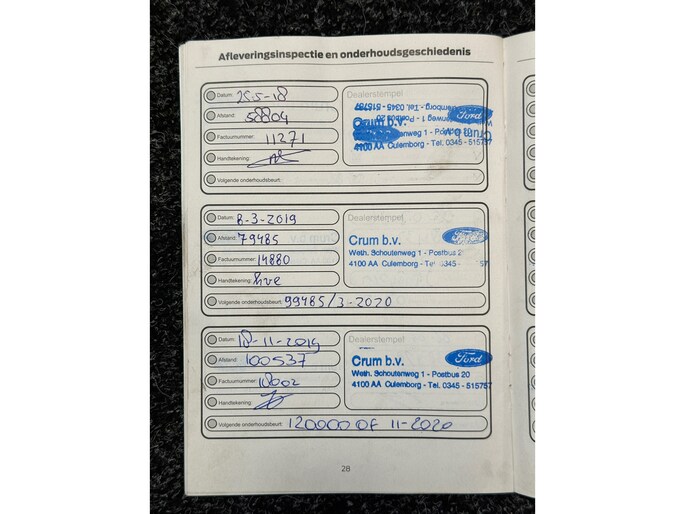 Afleveringsinspectie en onderhoudsgeschiedenis
Datum: 25-5-18
Afstand: 58804
Factuurnummer: 11271
Handtekening:
Volgende onderhoudsbeurt:
Dealerstempel
Ford
Crum b.v.
Crum b.v.
4100 AA Culemborg - Tel. 0345 - 515757
Datum: 8-3-2019
Afstand: 79485
Factuurnummer: 14880
Handtekening:
Volgende onderhoudsbeurt: 99485/3-2020
Dealerstempel
Ford
Crum b.v.
Weth. Schoutenweg 1 - Postbus 2
4100 AA Culemborg - Tel 0345 - 57
Datum: 18-11-2019
Afstand: 100537
Factuurnummer: 18002
Handtekening:
Volgende onderhoudsbeurt: 120000 OF 11-2020
Dealerstempel
Ford
Crum b.v.
Weth. Schoutenweg 1 - Postbus 20
4100 AA Culemborg - Tel. 0345 - 515757
28